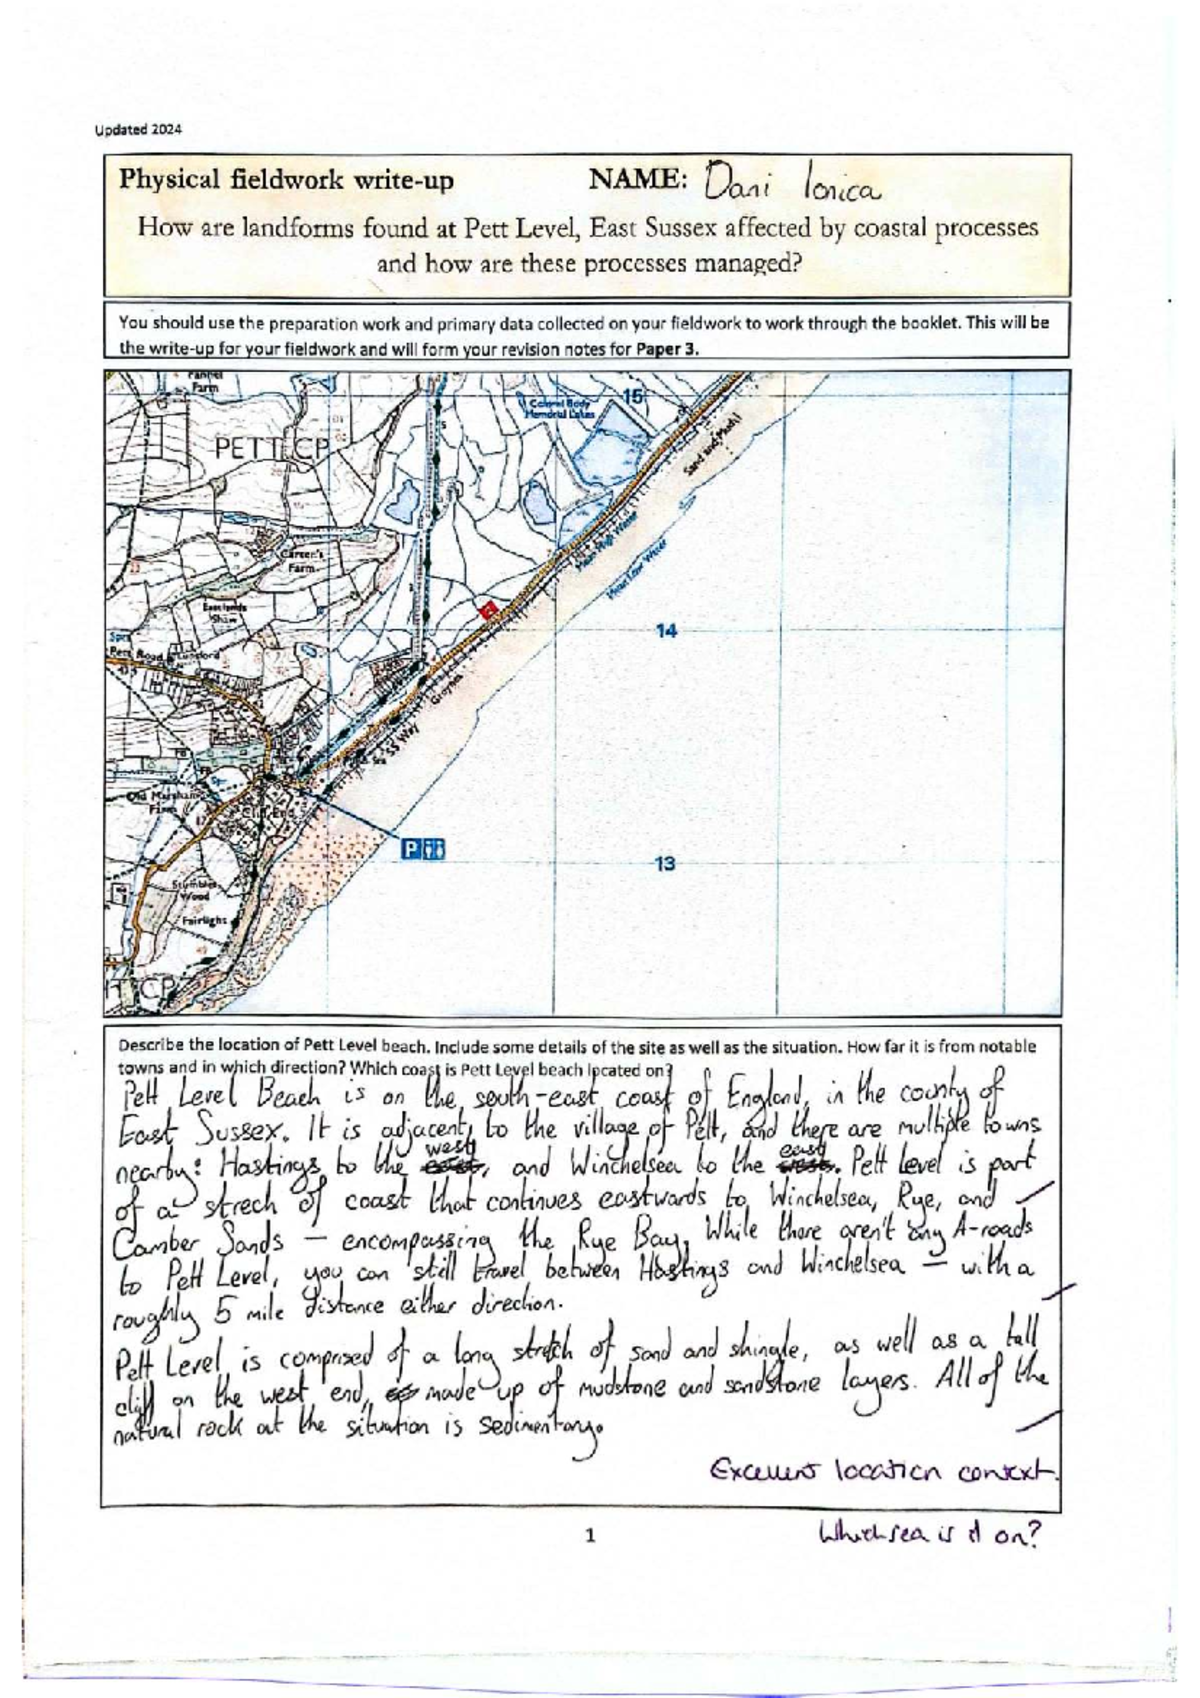 Updated 2024
Physical fieldwork write-up NAME: Dani Ionica
How are landforms found at Pett Level, East Sussex affected by coastal processes
and how are these processes managed?
You should use the preparation work and primary data collected on your fieldwork to work through the booklet. This will be
the write-up for your fieldwork and will form your revision notes for Paper 3.
Farm
15
Colonel Body
Memorial Lakes
PETT CP
Sand and Mud
Carter's
Farm
Mean High Water
Mean Low Water
14
Pett Road
Groynes
Old Marsham
Farm
Cliff End
P
13
Stumblet
Wood
Fairlight
CP
Describe the location of Pett Level beach. Include some details of the site as well as the situation. How far it is from notable
towns and in which direction? Which coast is Pett Level beach located on?
Pett Level Beach is on the south-east coast of England, in the county of
East Sussex. It is adjacent to the village of Pett, and there are multiple towns
nearby: Hastings to the west, and Winchelsea to the east. Pett Level is part
of a strech of coast that continues eastwards to Winchelsea, Rye, and
Camber Sands — encompassing the Rye Bay. While there aren't any A-roads
to Pett Level, you can still travel between Hastings and Winchelsea — with a
roughly 5 mile distance either direction.
Pett Level is comprised of a long stretch of sand and shingle, as well as a tall
cliff on the west end, made up of mudstone and sandstone layers. All of the
natural rock at the situation is sedimentary.
Excellent location context.
1
Which sea is it on?